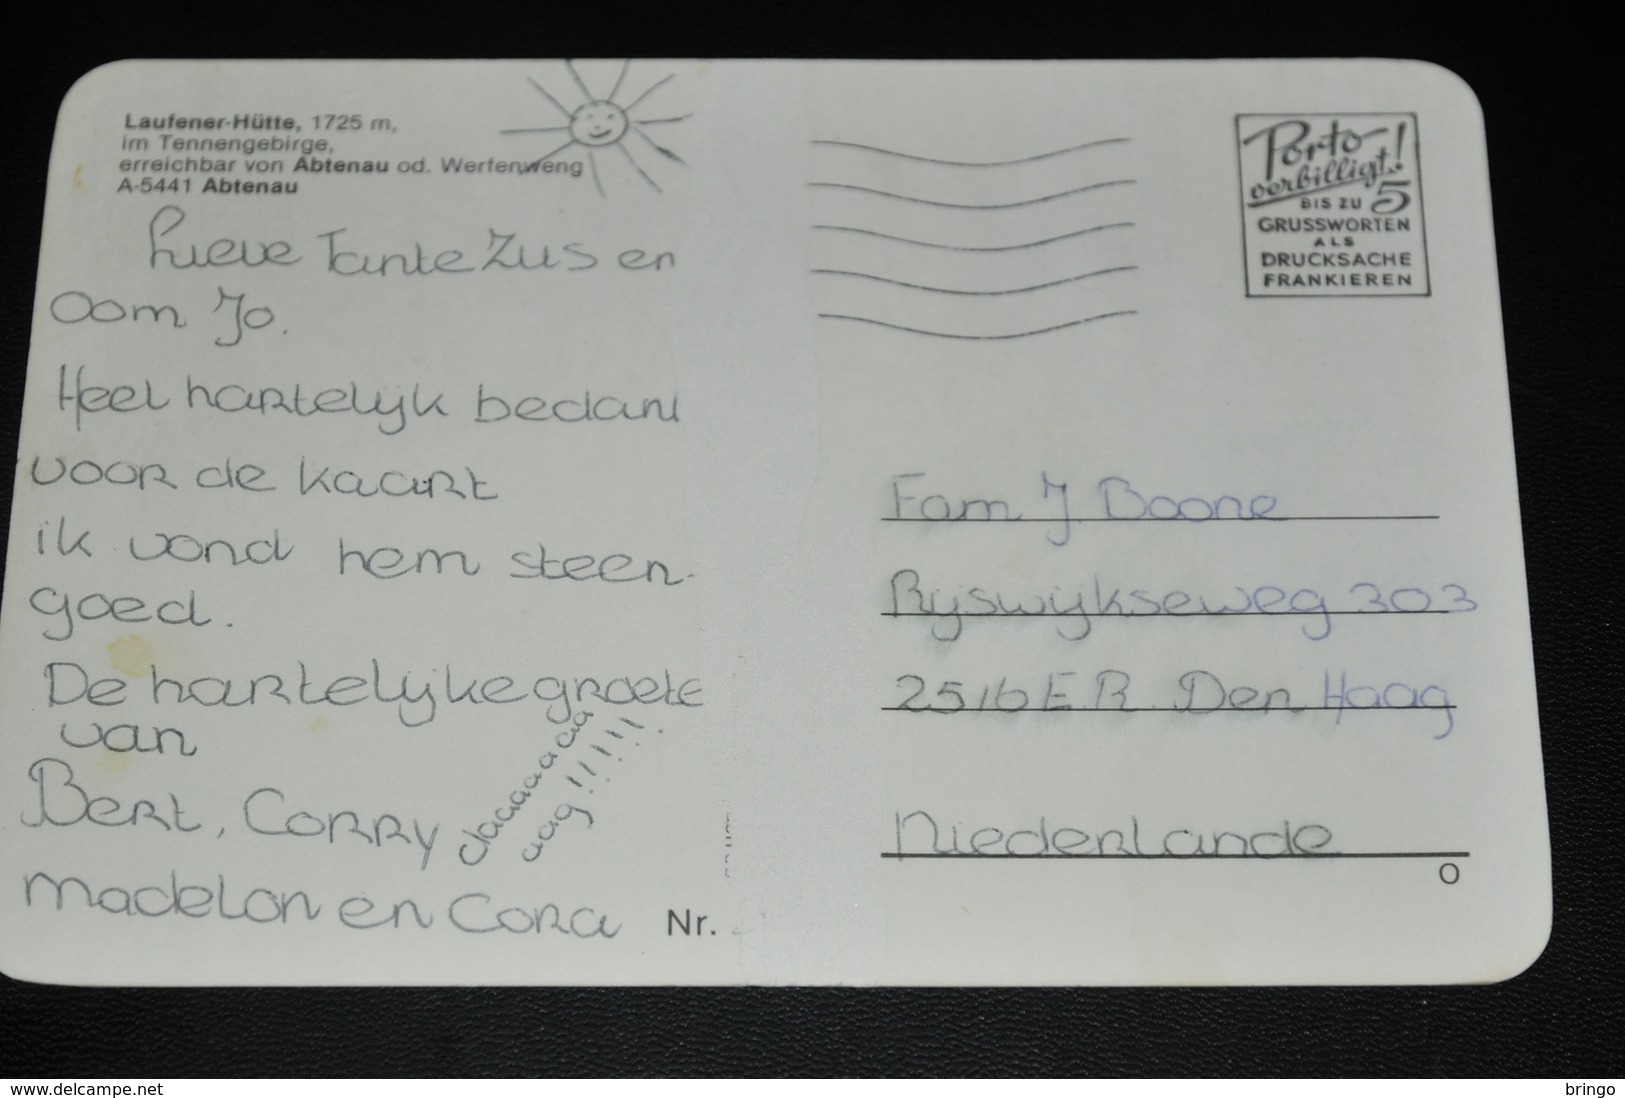 Laufener-Hütte, 1725 m,
im Tennengebirge,
erreichbar von Abtenau od. Werfenweng
A-5441 Abtenau
Lieve Tante Zus en
Oom Jo.
Heel hartelijk bedank
voor de kaart
ik vond hem steen-
goed.
De hartelijke groete
van
Bert, Corry
Madelon en Cora
daaaaaaaa
aag!!!!!!
Nr.
Porto
verbilligt!
BIS ZU 5
GRUSSWORTEN
ALS
DRUCKSACHE
FRANKIEREN
Fam J. Boone
Ryswijkseweg 303
2516 E.R. Den Haag
Niederlande
O
www.delcampe.net
bringo